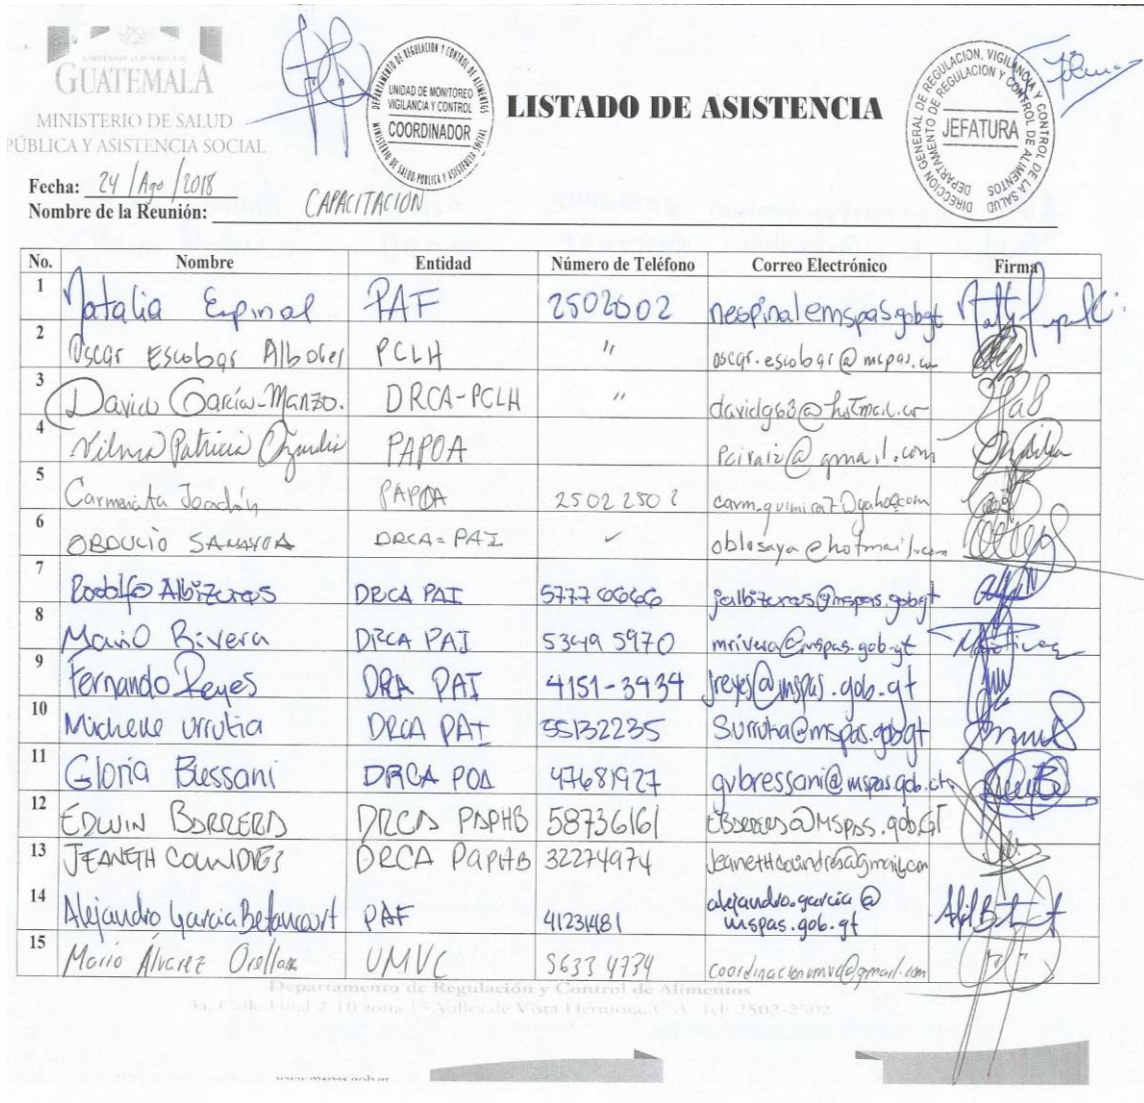 GUATEMALA
MINISTERIO DE SALUD
PÚBLICA Y ASISTENCIA SOCIAL
DEPARTAMENTO DE REGULACIÓN Y CONTROL DE ALIMENTOS
UNIDAD DE MONITOREO
VIGILANCIA Y CONTROL
COORDINADOR
MINISTERIO DE SALUD PÚBLICA Y ASISTENCIA SOCIAL
LISTADO DE ASISTENCIA
DIRECCIÓN GENERAL DE REGULACIÓN, VIGILANCIA Y CONTROL DE LA SALUD
DEPARTAMENTO DE REGULACIÓN Y CONTROL DE ALIMENTOS
JEFATURA
Fecha: 24/Ago/2018
Nombre de la Reunión: CAPACITACIÓN
No. Nombre Entidad Número de Teléfono Correo Electrónico Firma
1 Natalia Espinal PAF 2502502
2 Oscar Escobar PCLH " oscar.escobar@mspas.
3 David García-Manzo. DRCA-PCLH " davidg63@hotmail.
4 Vilma Patricia PAPOA @gmail.com
5 Carmencita PAPOA 25022502
6 OBDULIO SAMAYOA DRCA-PAI ✓ oblosaya@hotmail.com
7 Rodolfo Albizures DRCA PAI 57776666 jalbizures@mspas.gob.gt
8 Mario Rivera DRCA PAI 53495970 mrivera@mspas.gob.gt
9 Fernando Reyes DRA PAI 4151-3434 jreyes@mspas.gob.gt
10 Michelle Urrutia DRCA PAI 55132235 Surrutia@mspas.gob.gt
11 Gloria Bressani DRCA POA 47681927 gvbressani@mspas.gob.gt
12 EDWIN BARRERA DRCA PAPHB 58736161 EBARRERA@MSPAS.gob.GT
13 JEANETH COLINDRES DRCA PAPHB 32274974 Jeanethcolindres@gmail.com
14 Alejandro García Betancourt PAF 41231481 alejandro.garcia@
mspas.gob.gt
15 Mario Álvarez Orellana UMVC 56334734 coordinacionumvc@gmail.com
Departamento de Regulación y Control de Alimentos
3a. Calle Final 2-10 zona 15 Valles de Vista Hermosa, C.A. Tel: 2502-2502
www.mspas.gob.gt